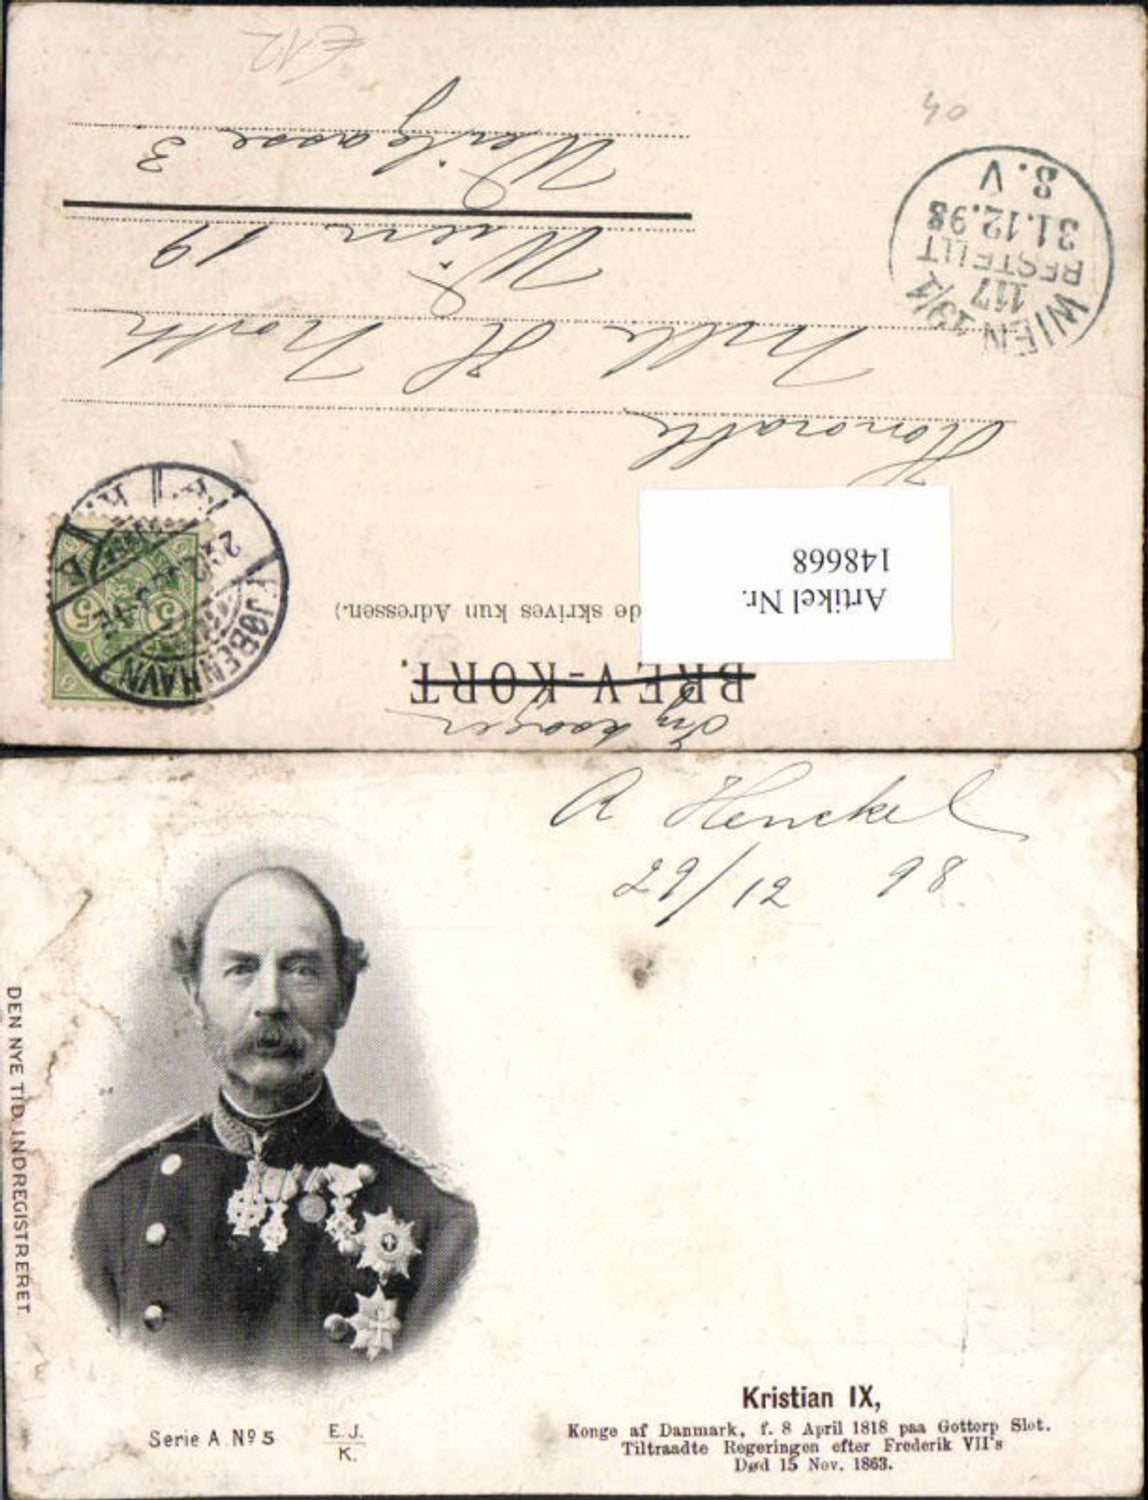 BREV-KORT.
de skrives kun Adressen.)
Artikel Nr.
148668
KJØBENHAVN
K.
5
5
Honorable
Wien 19
3
WIEN 19/1
117
BESTELLT
31.12.98
8.V
40
A Henckel
29/12 98.
DEN NYE TID. INDREGISTRERET.
Serie A Nº 5
E. J.
K.
Kristian IX,
Konge af Danmark, f. 8 April 1818 paa Gottorp Slot.
Tiltraadte Regeringen efter Frederik VII's
Død 15 Nov. 1863.